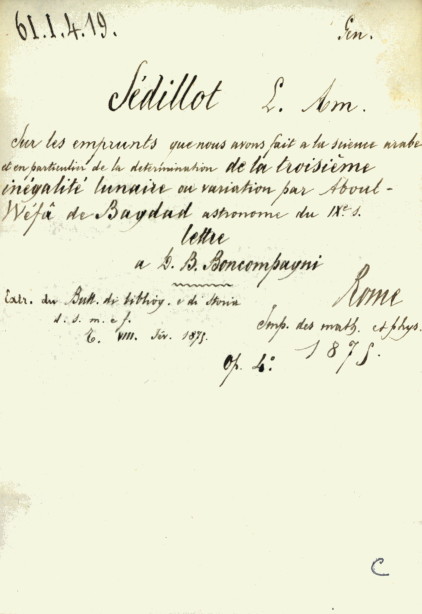 61.1.4.19. Gen.
Sédillot L. Am.
Sur les emprunts que nous avons fait a la science arabe
et en particulier de la determination de la troisième
inégalité lunaire ou variation par Aboul-
Wéfâ de Bagdad astronome du IXe s.
lettre
a D. B. Boncompagni
Extr. du Bull. di bibliog. e di storia Rome
d. s. m. e f. Imp. des math. et phys.
T. VIII. Fév. 1875. 1875.
Op. 4º
C